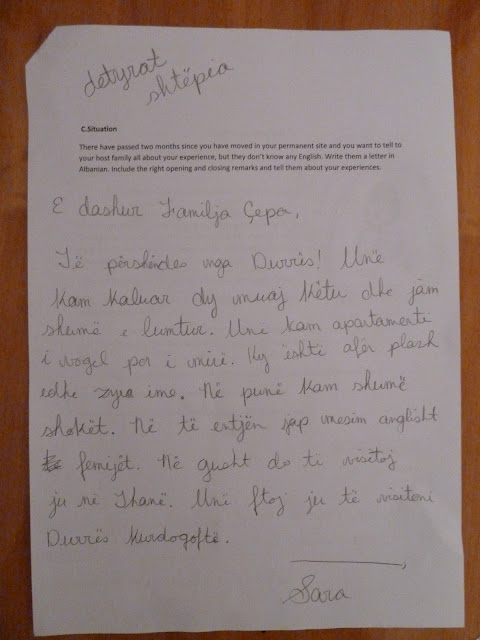 detyrat
shtëpia
C.Situation
There have passed two months since you have moved in your permanent site and you want to tell to
your host family all about your experience, but they don't know any English. Write them a letter in
Albanian. Include the right opening and closing remarks and tell them about your experiences.
E dashur Familja Çepa,
Të përshëndes nga Durrës! Unë
kam kaluar dy muaj këtu dhe jam
shumë e lumtur. Une kam apartamenti
i vogel por i mirë. Ky është afër plazh
edhe zyra ime. Në punë kam shumë
shokët. Në të entjën jap mesim anglisht
femijët. Në gusht do të visitoj
ju në Thanë. Unë ftoj ju të visiteni
Durrës kurdogoftë.
Sara